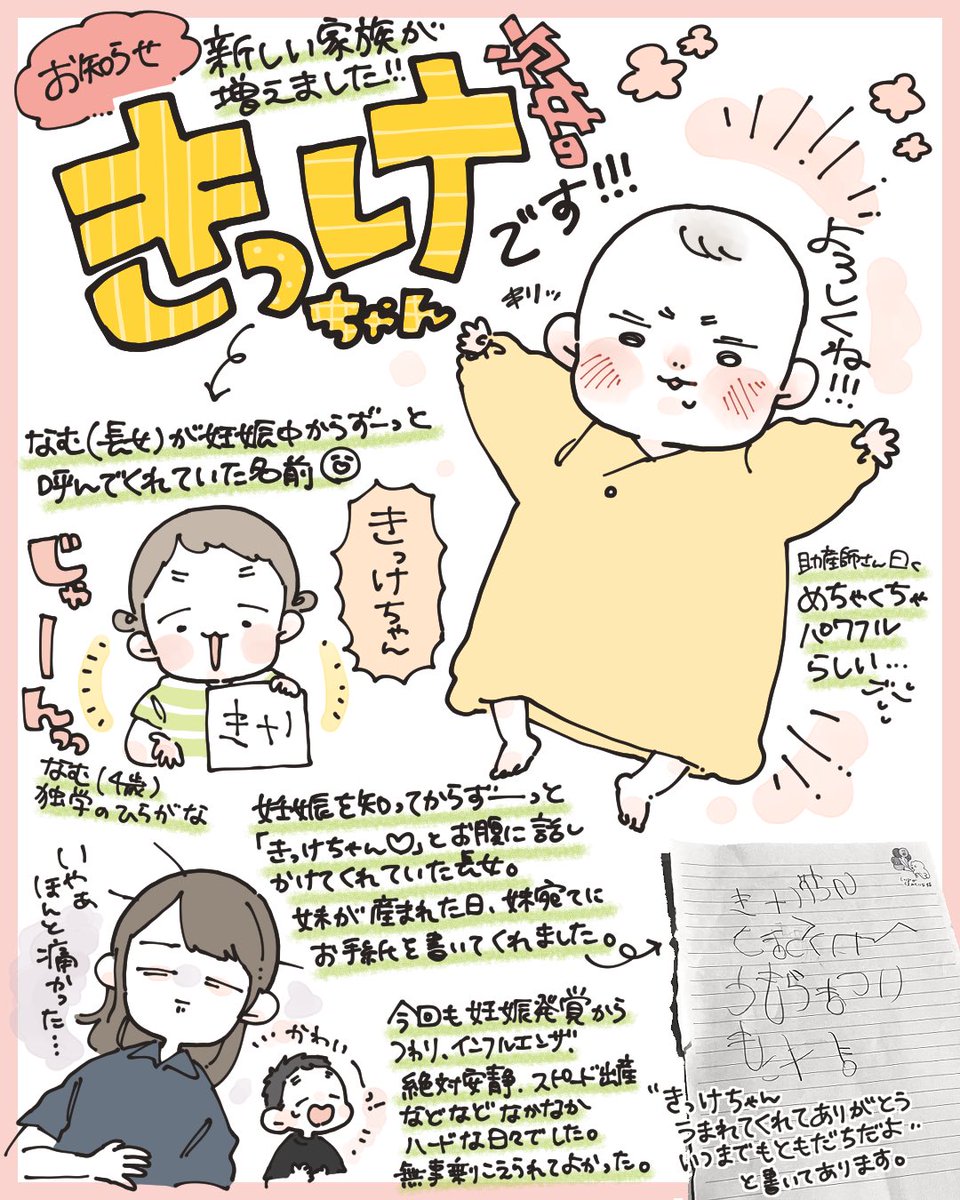 お知らせ
新しい家族が
増えました!!
次女の
きっけ
ちゃん
です!!!
よろしくね!!!
キリッ
なむ(長女)が妊娠中からずーっと
呼んでくれていた名前
きっけちゃん
じゃーんっ
なむ(4歳)
独学のひらがな
助産師さん曰く
めちゃくちゃ
パワフル
らしい…
妊娠を知ってからずーーっと
「きっけちゃん♡」とお腹に話し
かけてくれていた長女。
妹が産まれた日、妹宛てに
お手紙を書いてくれました。
いやぁ
ほんと痛かった…
かわいい
今回も妊娠発覚から
つわり、インフルエンザ、
絶対安静、スピード出産
などなどなかなか
ハードな日々でした。
無事乗りこえられてよかった。
"きっけちゃん
うまれてくれてありがとう
いつまでもともだちだよ"
と書いてあります。